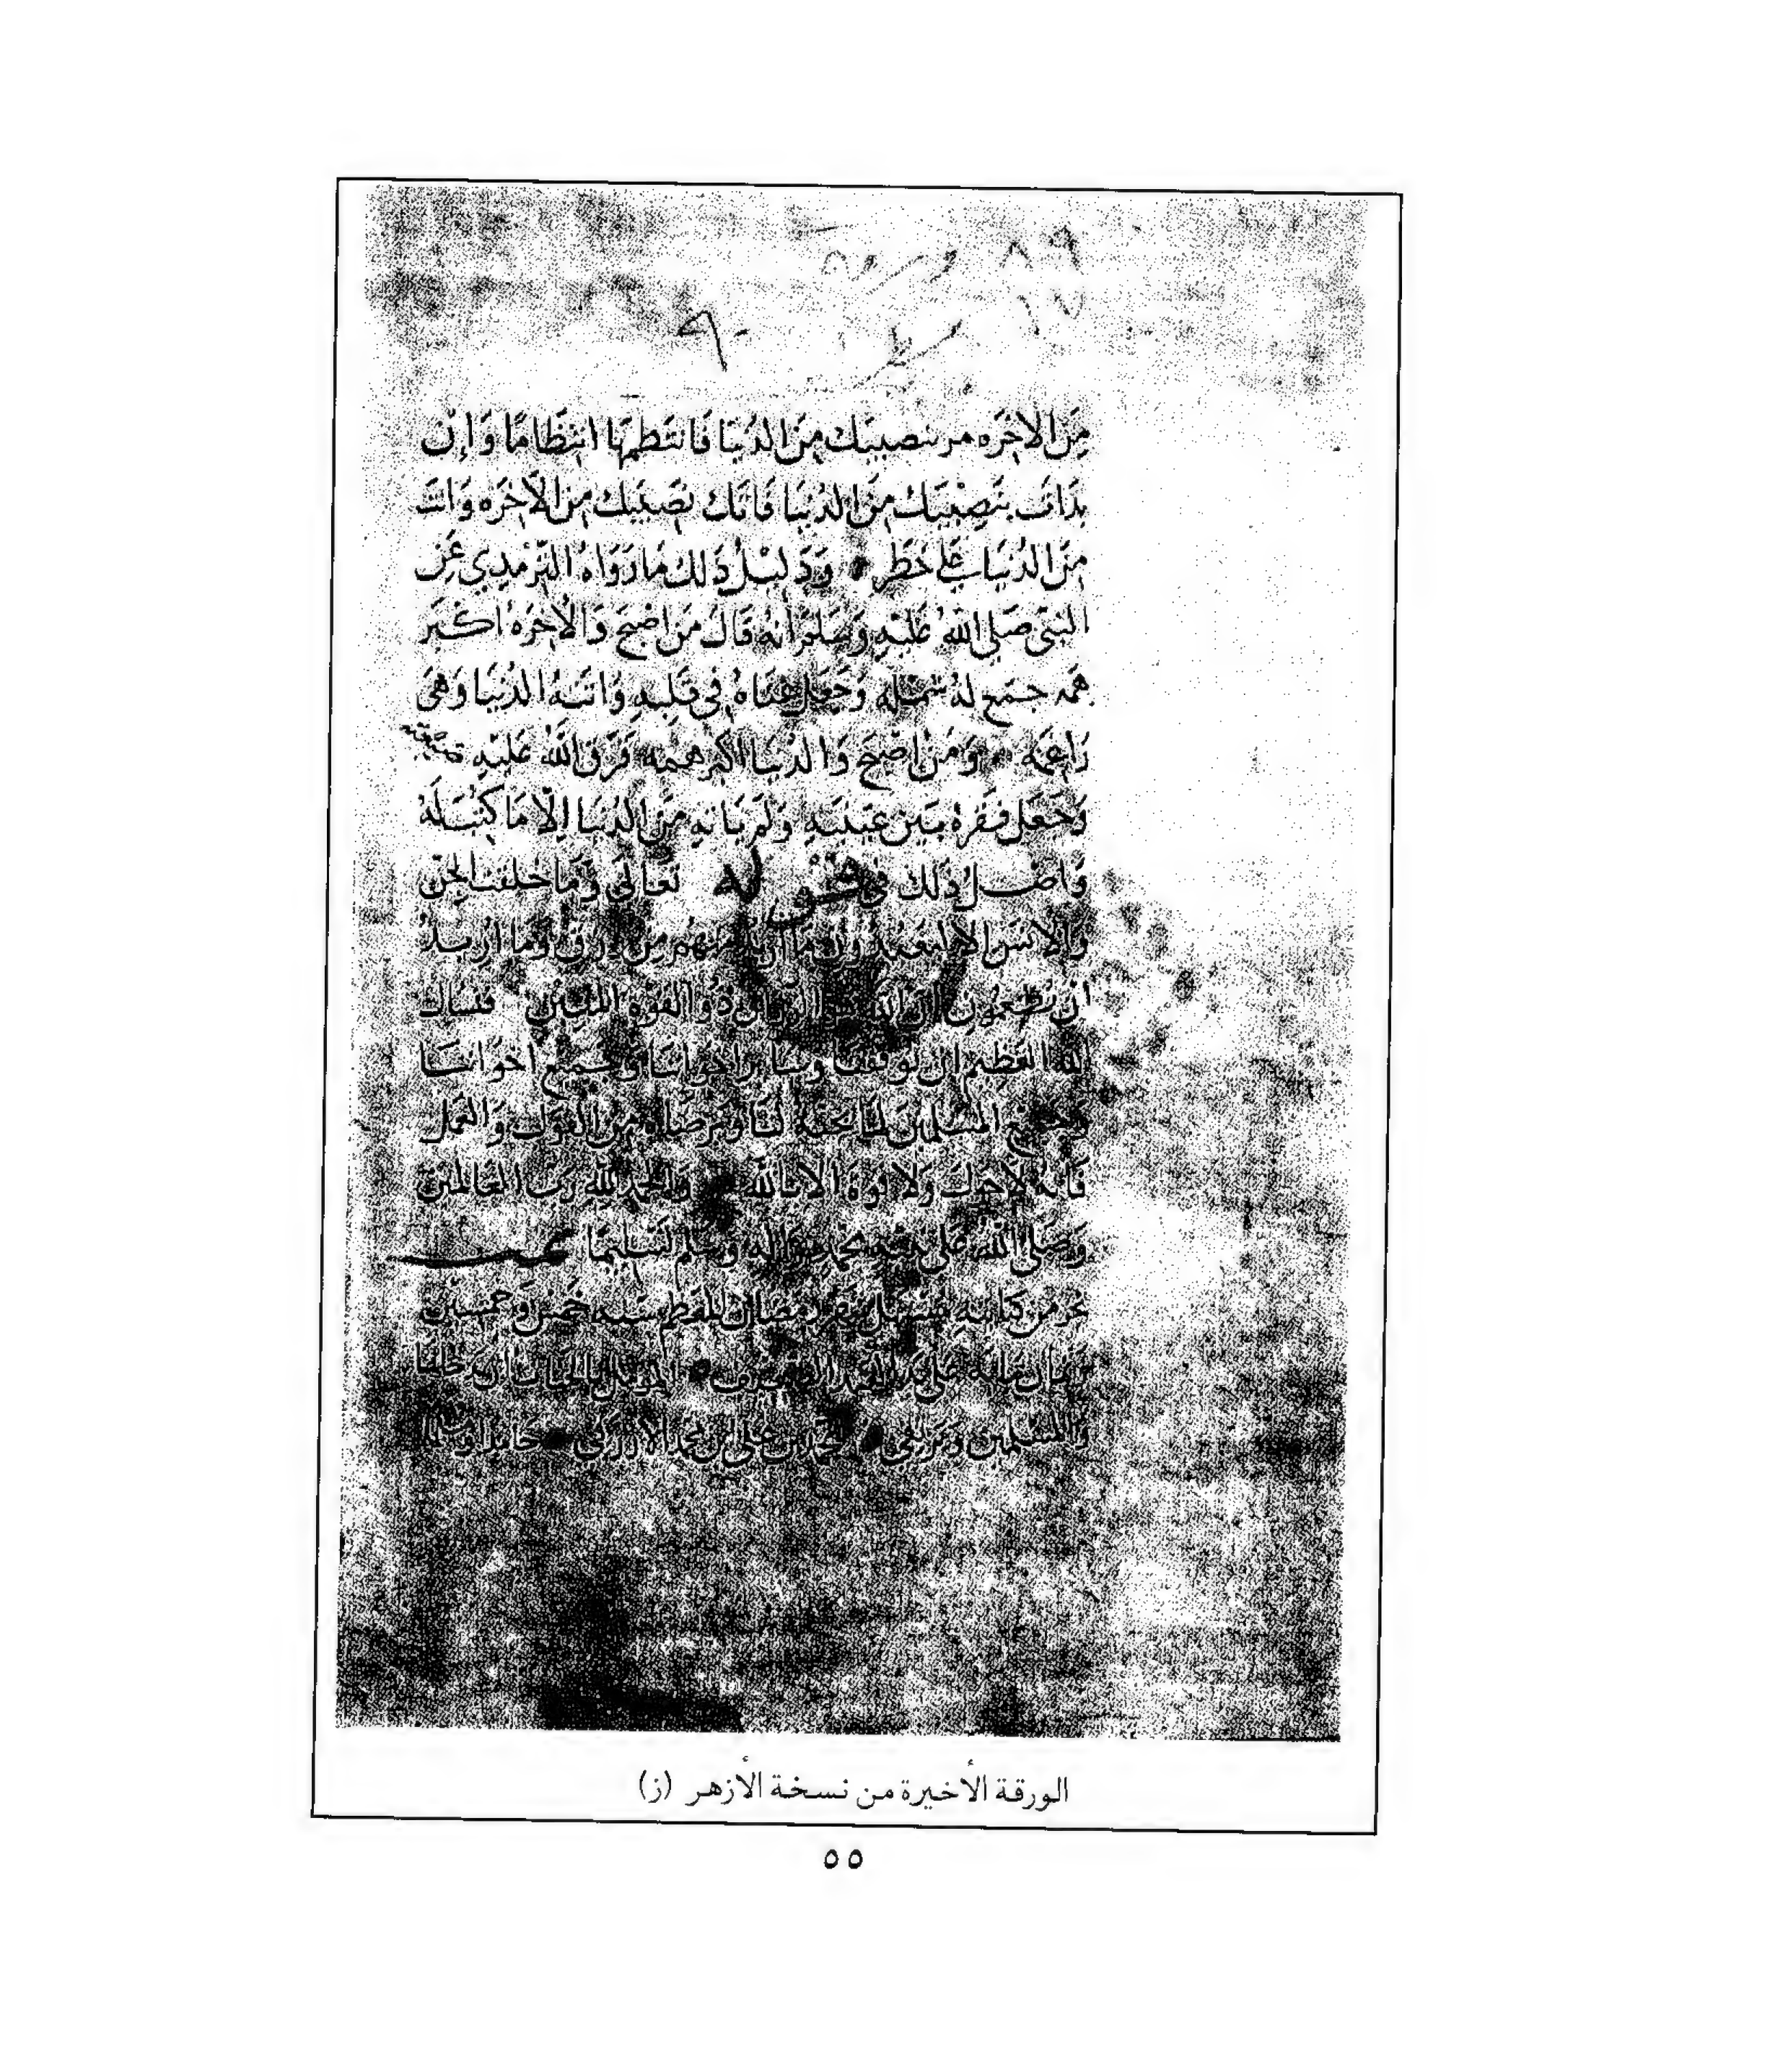 ٩٠
من الاخره مر بنصيبك من الدنيا فانتظمها انتظاما وإن
بدات بنصيبك من الدنيا فاتك نصيبك من الآخره وانت
من الدنيا على خطر ودليل ذلك ما رواه الترمدي عن
النبي صلى الله عليه وسلم أنه قال من اصبح والآخرة اكبر
همه جمع له شمله وجعل غناه في قلبه واتته الدنيا وهي
راغمه ومن اصبح والدنيا اكبر همه فرق الله عليه ضيعته
وجعل فقره بين عينيه ولم ياته من الدنيا إلا ما كتب له
واصل ذلك في قوله تعالى وما خلقت الجن
والانس الا ليعبدون ما اريد منهم من رزق وما اريد
ان يطعمون ان الله هو الرزاق ذو القوة المتين فنسال
الله العظيم ان يوفقنا وساير اخواننا وجميع اخواننا
وجميع المسلمين لما يحبه لنا ويرضاه من القول والعمل
فانه لا حول ولا قوة الا بالله والحمد لله رب العالمين
وصلى الله على محمد واله وسلم تسليما
من كتابته مستهل شهر رمضان المعظم سنه خمس وخمسين
على يد العبد
والمسلمين محمد بن علي بن محمد حامدا
الورقة الأخيرة من نسخة الأزهر (ز)
٥٥